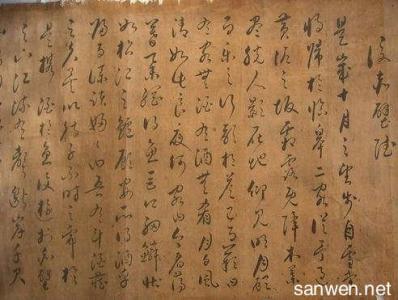 後赤壁賦
是歲十月之望步自雪堂
將歸於臨皋二客從予過
黃泥之坂霜露既降木葉
盡脫人影在地仰見明月顧
而樂之行歌相答已而歎曰
有客無酒有酒無肴月白風
清如此良夜何客曰今者薄
暮舉網得魚巨口細鱗狀
如松江之鱸顧安所得酒乎
歸而謀諸婦曰吾有斗酒藏
之久矣以待子不時之需於
是攜酒與魚復遊於赤壁
之下江流有聲斷岸千尺
sanwen.net